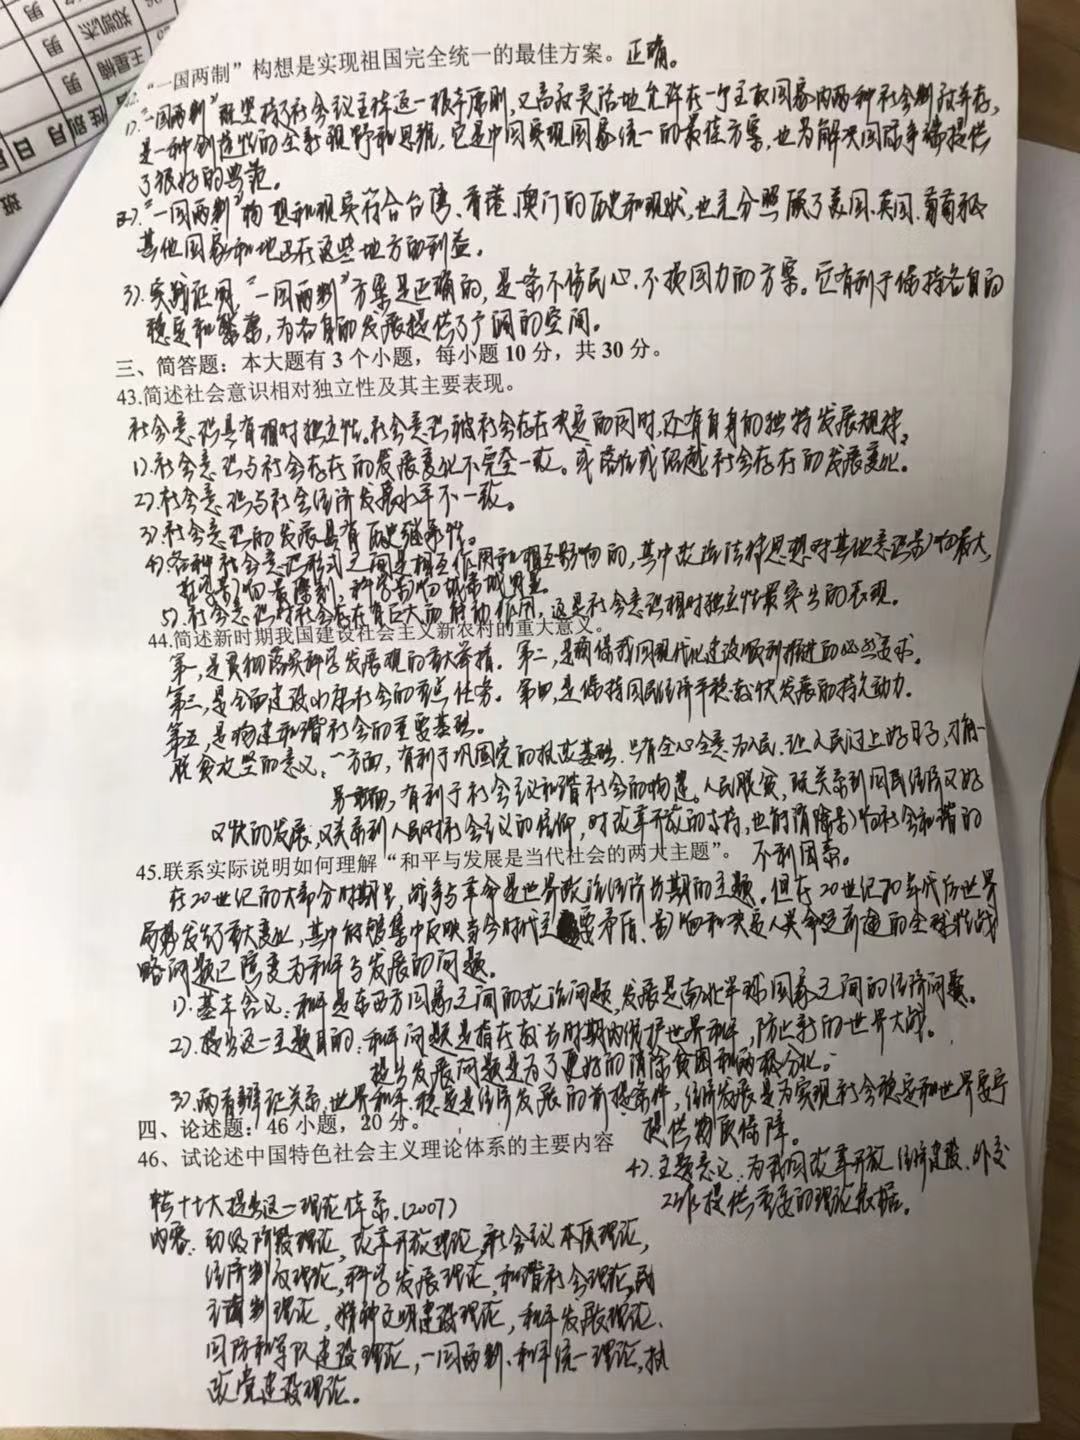 郑凯杰 男
男
男
性别
月
日
班
42.“一国两制”构想是实现祖国完全统一的最佳方案。正确。
1).“一国两制”既坚持了社会主义这一根本原则,又高度灵活地允许在一个主权国家内两种社会制度并存,
是一种创造性的全新视野和思维,它是中国实现国家统一的最佳方案,也为解决国际争端提供
了很好的典范。
2).“一国两制”构想和现实符合台湾、香港、澳门的历史和现状,也充分照顾了美国、英国、葡萄牙
其他国家和地区在这些地方的利益。
3).实践证明,“一国两制”方案是正确的,是一条不伤民心、不损国力的方案。它有利于保持各自的
稳定和繁荣,为各自的发展提供了广阔的空间。
三、简答题:本大题有 3 个小题,每小题 10 分,共 30 分。
43.简述社会意识相对独立性及其主要表现。
社会意识具有相对独立性。社会意识被社会存在决定的同时,还有自身的独特发展规律。
1).社会意识与社会存在的发展变化不完全一致。或落后或超越社会存在的发展变化。
2).社会意识与社会经济发展水平不一致。
3).社会意识的发展具有历史继承性。
4)各种社会意识形式之间是相互作用和相互影响的,其中政治法律思想对其他意识影响最大,
哲学影响最深刻,科学影响
5).社会意识对社会存在有巨大而能动作用,这是社会意识相对独立性最突出的表现。
44.简述新时期我国建设社会主义新农村的重大意义。
第一,是贯彻落实科学发展观的重大举措。第二,是确保我国现代化建设顺利推进的必然要求。
第三,是全面建设小康社会的重点任务。第四,是保持国民经济平稳较快发展的持久动力。
第五,是构建和谐社会的重要基础。
脱贫攻坚的意义:一方面,有利于巩固党的执政基础。只有全心全意为人民,让人民过上好日子,才能
另一方面,有利于社会主义和谐社会的构建。人民脱贫,既关系到国民经济又好
又快的发展,又关系到人民对社会主义的信仰,对改革开放的支持,也能消除影响社会和谐的
不利因素。
45.联系实际说明如何理解“和平与发展是当代社会的两大主题”。
在20世纪的大部分时期里,战争与革命是世界政治经济长期的主题。但在20世纪70年代后世界
局势发生了重大变化,其中能够集中反映当今时代主要矛盾、影响和决定人类命运前途的全球性战
略问题已改变为和平与发展的问题。
1).基本含义:和平是东西方国家之间的政治问题,发展是南北半球国家之间的经济问题。
2).提出这一主题目的:和平问题是指在较长时期内保护世界和平,防止新的世界大战。
提出发展问题是为了更好的消除贫困和两极分化。
3).两者辩证关系,世界和平、稳定是经济发展的前提条件,经济发展是为实现社会稳定和世界安宁
提供物质保障。
4).主题意义:为我国改革开放、经济建设、外交
工作提供重要的理论依据。
四、论述题:46 小题,20 分。
46、试论述中国特色社会主义理论体系的主要内容
十七大提出这一理论体系。(2007)
内容:初级阶段理论,改革开放理论,社会主义本质理论,
经济制度理论,科学发展理论,和谐社会理论,民
主 制理论,精神文明建设理论,和平发展理论、
国防和军队建设理论,一国两制、和平统一理论,执
政党建设理论。